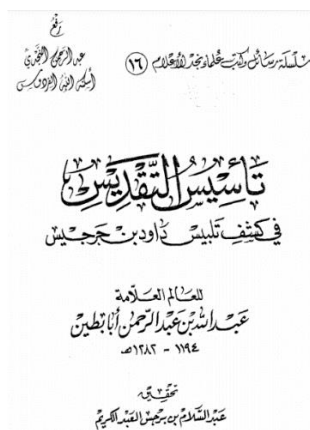 رفع
عبد الرحمن النجدي
أسكنه الله الفردوس
سلسلة رسائل وكتب علماء نجد الأعلام (١٦)
تأسيس التقديس
في كشف تلبيس داود بن جرجيس
للعالم العلامة
عبد الله بن عبد الرحمن أبا بطين
١١٩٤ - ١٢٨٢هـ
تحقيق
عبد السلام بن برجس العبد الكريم